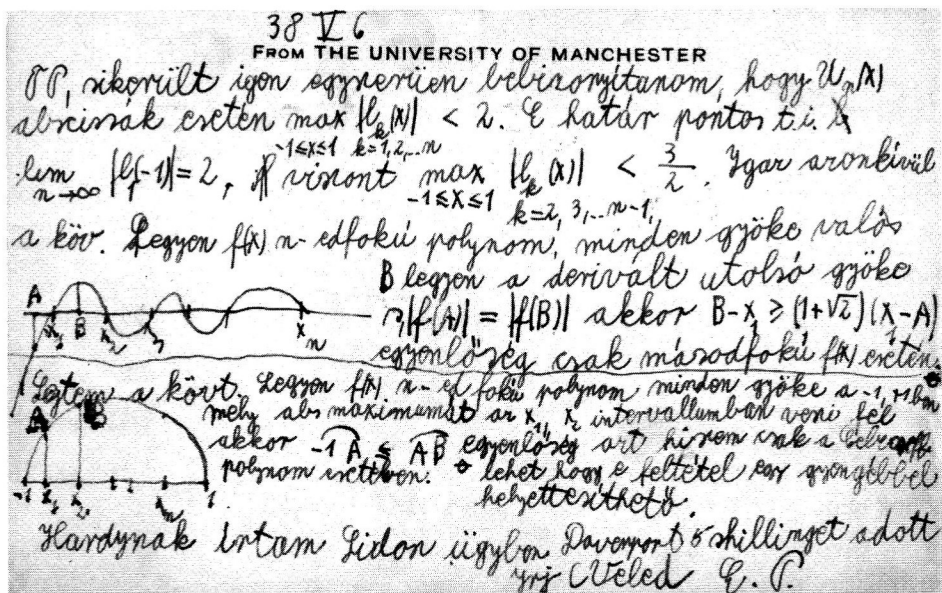 38 V 6
FROM THE UNIVERSITY OF MANCHESTER
sikerült igen egyszerűen bebizonyítanom, hogy Uₙ(x)
abscissák esetén max |lₖ(x)| < 2. E határ pontos t.i.
-1≤x≤1 k=1,2,...n
lim n→∞ |l₁(-1)| = 2, viszont max |lₖ(x)| < 3/2. Igaz azonkívül
-1≤x≤1 k=2,3,...n-1,
a köv. Legyen f(x) n-edfokú polynom, minden gyöke valós
B legyen a derivált utolsó gyöke
A x₁ B x₂ x₃ xₙ
|f(A)| = |f(B)| akkor B-x₁ ≥ (1+√2)(x₁-A)
egyenlőség csak másodfokú f(x) esetén.
Sejtem a követ. Legyen f(x) n-ed fokú polynom minden gyöke a -1, +1 ben
mely abs maximumát az x₁, x₂ intervallumban veszi fel
A B
akkor -1A ≤ AB egyenlőség azt hiszem csak a
polynom esetében. lehet hogy e feltétel egy gyengébbel
helyettesíthető.
-1 x₁ x₂ xₙ 1
Hardynak írtam Sidon ügyben Davenport 5 shillinget adott
írj Veled E. P.